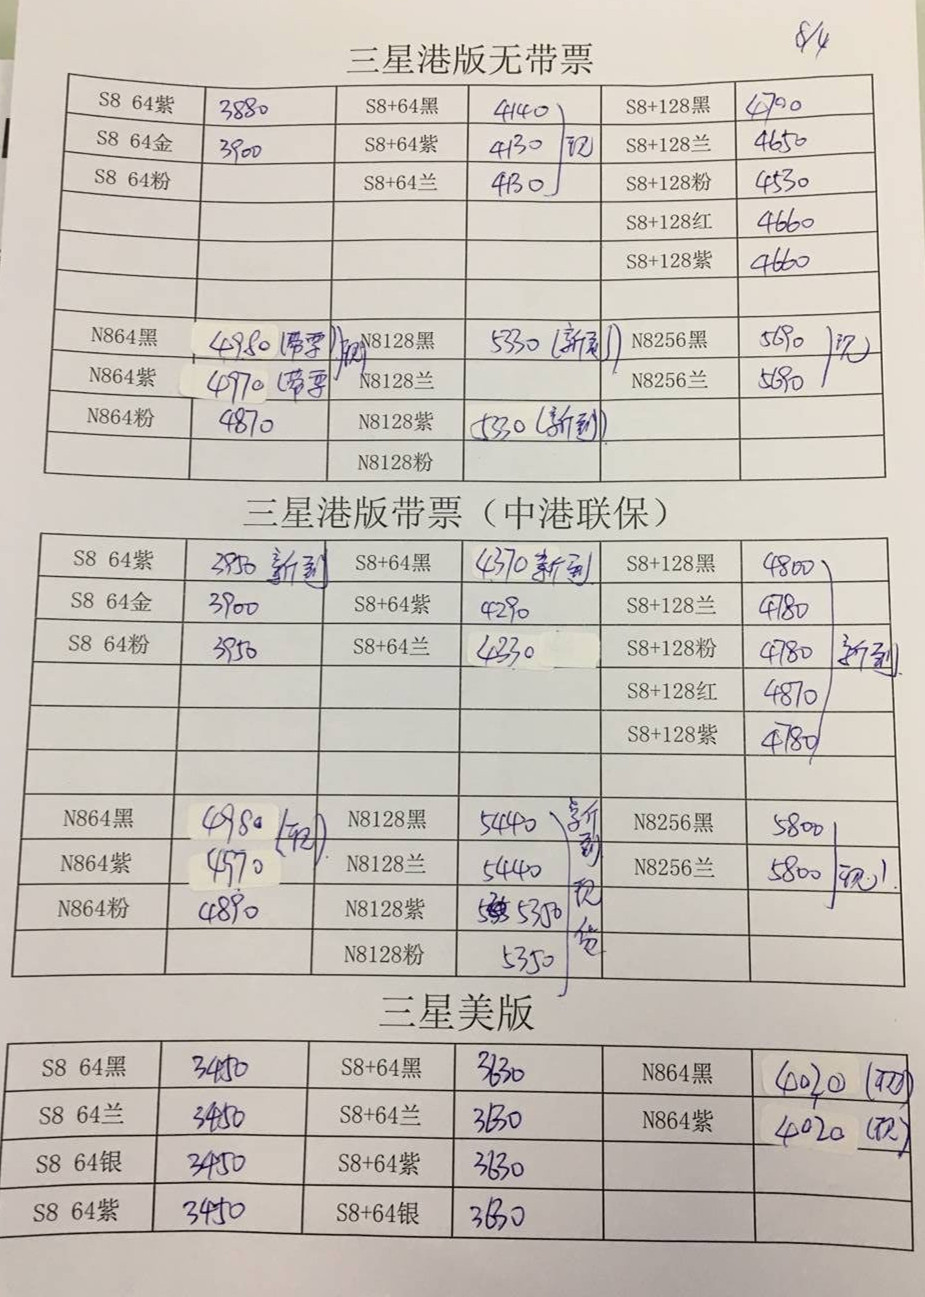 8/4
三星港版无带票
S8 64紫 3880 S8+64黑 4140 S8+128黑 4790
S8 64金 3900 S8+64紫 4130 现 S8+128兰 4650
S8 64粉 S8+64兰 4130 S8+128粉 4530
S8+128红 4660
S8+128紫 4660
N864黑 4980 (带票) 现 N8128黑 5330 (新到) N8256黑 5690 现
N864紫 4970 (带票 N8128兰 N8256兰 5690
N864粉 4870 N8128紫 5330 (新到)
N8128粉
三星港版带票（中港联保）
S8 64紫 3950 新到 S8+64黑 4370 新到 S8+128黑 4800
S8 64金 3900 S8+64紫 4290 S8+128兰 4780
S8 64粉 3950 S8+64兰 4330 S8+128粉 4780 新到
S8+128红 4870
S8+128紫 4780
N864黑 4980 (现) N8128黑 5440 新到现货 N8256黑 5800
N864紫 4970 N8128兰 5440 N8256兰 5800 现
N864粉 4890 N8128紫 5350
N8128粉 5350
三星美版
S8 64黑 3450 S8+64黑 3630 N864黑 4020 (现)
S8 64兰 3450 S8+64兰 3630 N864紫 4020 (现)
S8 64银 3450 S8+64紫 3630
S8 64紫 3450 S8+64银 3630